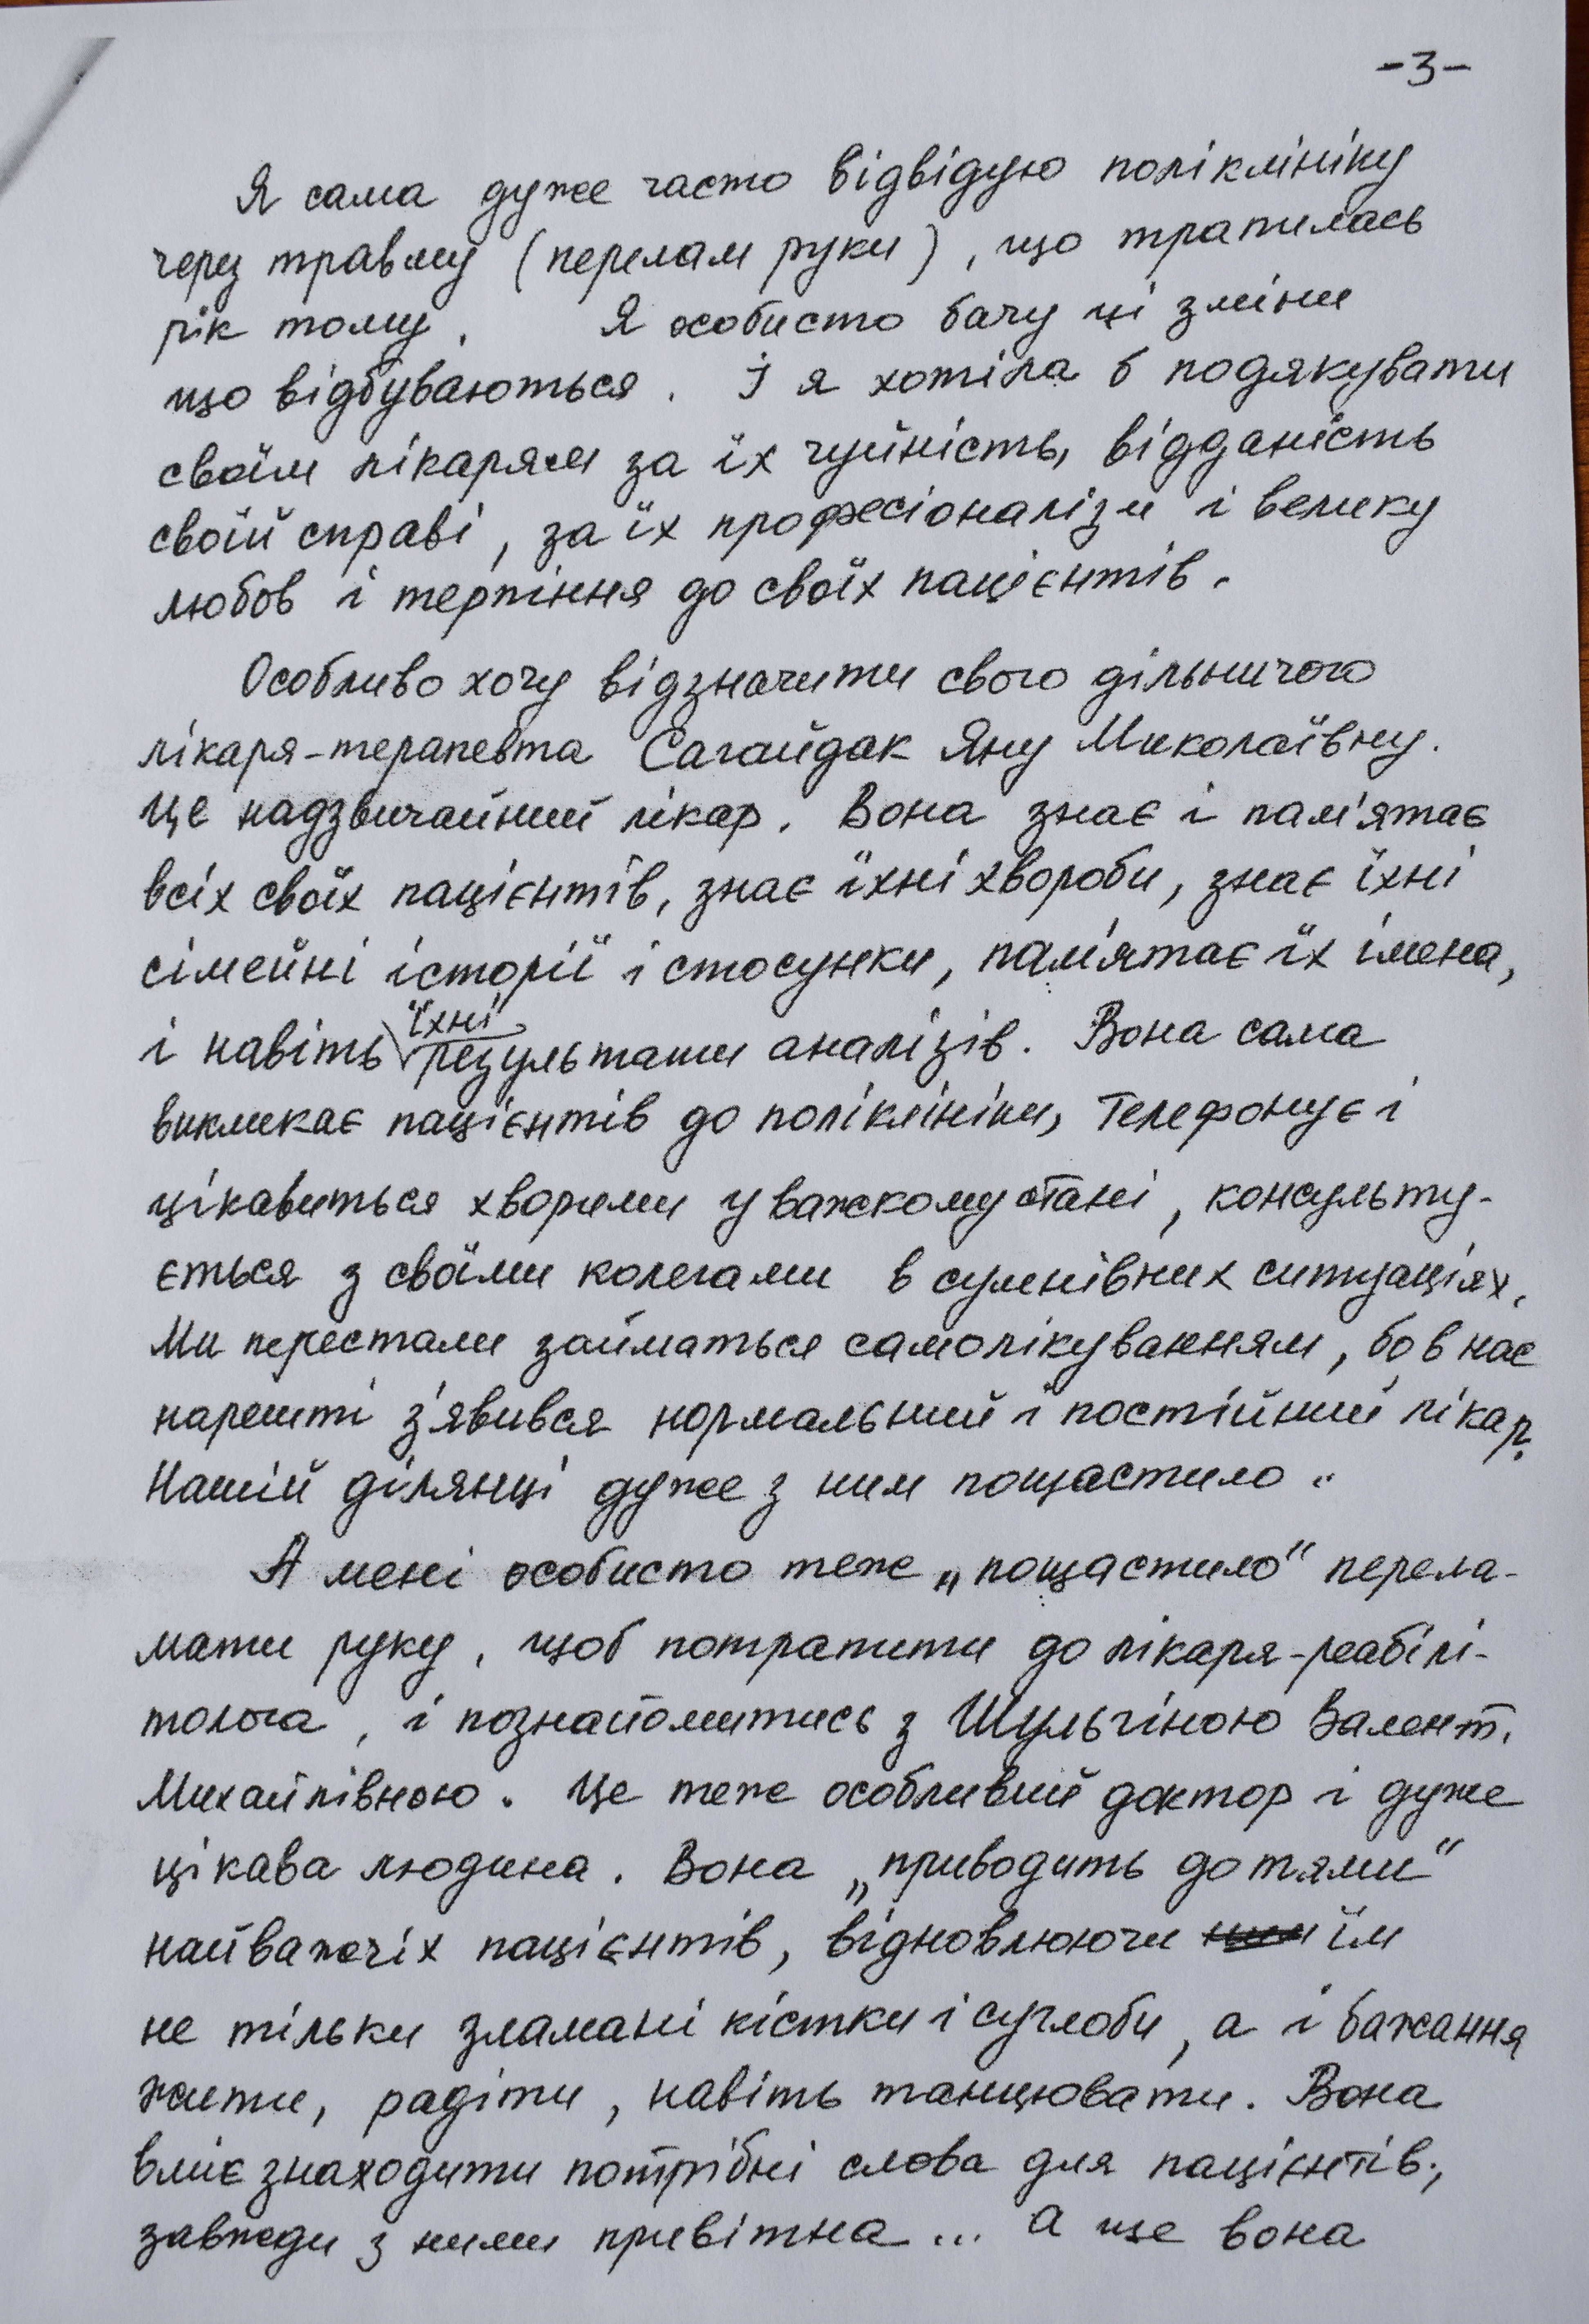 -3-
Я сама дуже часто відвідую поліклініку
через травму (перелам руки), що трапилась
рік тому. Я особисто бачу ці зміни
що відбуваються. І я хотіла б подякувати
своїм лікарям за їх чуйність, відданість
своїй справі, за їх професіоналізм і велику
любов і терпіння до своїх пацієнтів.
Особливо хочу відзначити свого дільничого
лікаря-терапевта Сагайдак Яну Миколаївну.
Це надзвичайний лікар. Вона знає і пам'ятає
всіх своїх пацієнтів, знає їхні хвороби, знає їхні
сімейні історії і стосунки, пам'ятає їх імена,
і навіть їхні результати аналізів. Вона сама
викликає пацієнтів до поліклініки, телефонує і
цікавиться хворими у важкому стані, консульту-
ється з своїми колегами в сумнівних ситуаціях.
Ми перестали займаться самолікуванням, бо в нас
нарешті з'явився нормальний і постійний лікар.
Нашій ділянці дуже з ним пощастило.
А мені особисто теж „пощастило“ перела-
мати руку, щоб потрапити до лікаря-реабілі-
толога, і познайомитись з Шульгіною Валент.
Михайлівною. Це теж особливий доктор і дуже
цікава людина. Вона „приводить до тями“
найважчіх пацієнтів, відновлюючи їм
не тільки зламані кістки і суглоби, а і бажання
жити, радіти, навіть танцювати. Вона
вміє знаходити потрібні слова для пацієнтів.,
завжди з ними привітна... а ще вона